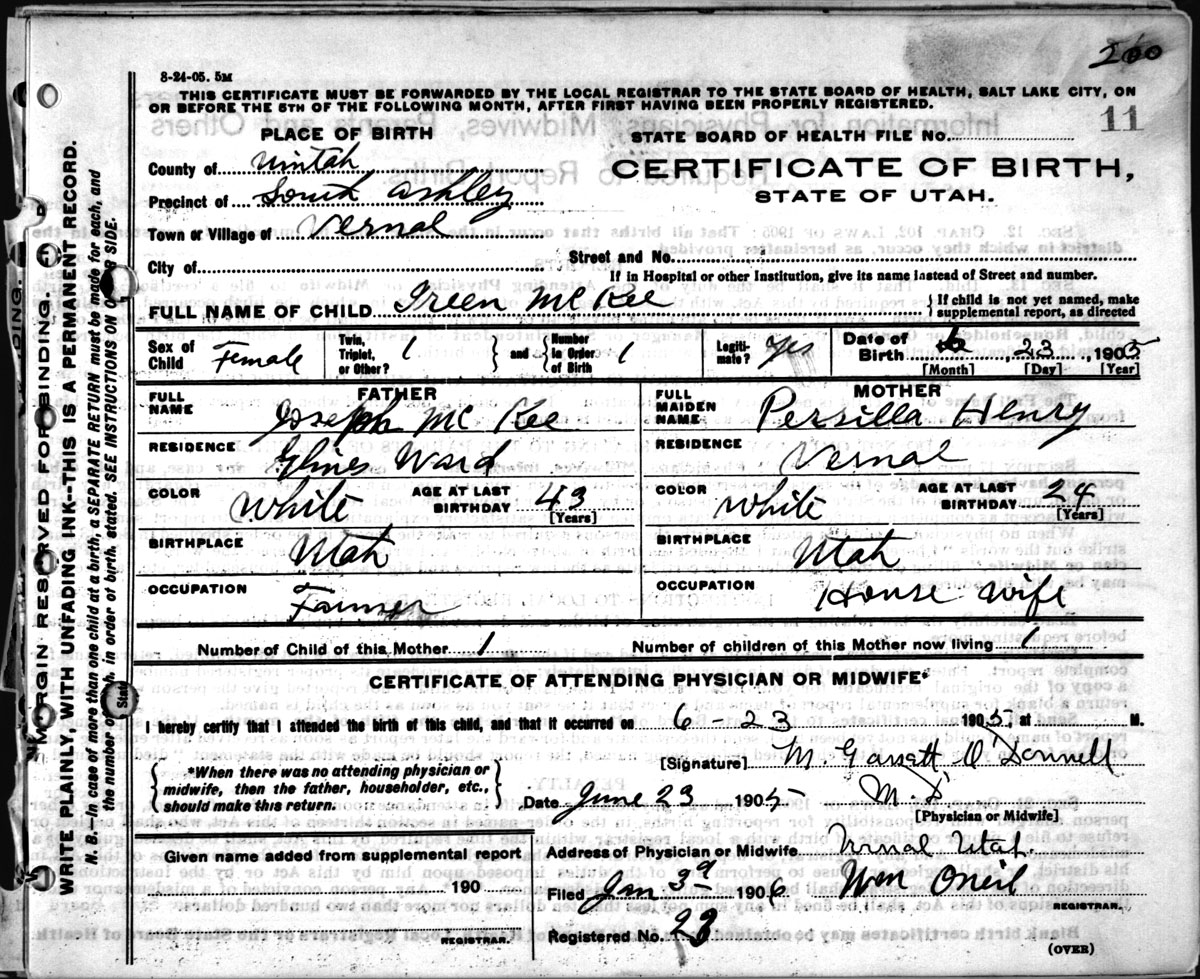 200
8-24-05. 5M
THIS CERTIFICATE MUST BE FORWARDED BY THE LOCAL REGISTRAR TO THE STATE BOARD OF HEALTH, SALT LAKE CITY, ON
OR BEFORE THE 5TH OF THE FOLLOWING MONTH, AFTER FIRST HAVING BEEN PROPERLY REGISTERED.
11
PLACE OF BIRTH
STATE BOARD OF HEALTH FILE No.
County of Uintah
CERTIFICATE OF BIRTH,
Precinct of South Ashley
STATE OF UTAH.
Town or Village of Vernal
City of
Street and No.
If in Hospital or other Institution, give its name instead of Street and number.
FULL NAME OF CHILD Ireen McKee
If child is not yet named, make
supplemental report, as directed
Sex of Child Female Twin, Triplet, or Other? 1 and Number in Order of Birth 1 Legitimate? Yes Date of Birth 6 23, 1905
[Month] [Day] [Year]
FATHER
MOTHER
FULL NAME Joseph Mc Kee
FULL MAIDEN NAME Persilla Henry
RESIDENCE Glines Ward
RESIDENCE Vernal
COLOR White AGE AT LAST BIRTHDAY 43 [Years]
COLOR White AGE AT LAST BIRTHDAY 24 [Years]
BIRTHPLACE Utah
BIRTHPLACE Utah
OCCUPATION Farmer
OCCUPATION House Wife
Number of Child of this Mother 1 Number of children of this Mother now living 1
CERTIFICATE OF ATTENDING PHYSICIAN OR MIDWIFE*
I hereby certify that I attended the birth of this child, and that it occurred on 6-23 1905, at M.
[Signature] M. Garrett O'Donnell
*When there was no attending physician or
midwife, then the father, householder, etc.,
should make this return.
Date June 23 1905
M. D
[Physician or Midwife]
Given name added from supplemental report
Address of Physician or Midwife Vernal Utah.
190
Filed Jan 3rd 1906 Wm Oneil
REGISTRAR.
REGISTRAR.
Registered No. 23
(OVER)
MARGIN RESERVED FOR BINDING.
WRITE PLAINLY, WITH UNFADING INK--THIS IS A PERMANENT RECORD.
N. B.--In case of more than one child at a birth, a SEPARATE RETURN must be made for each, and
the number of each, in order of birth, stated. SEE INSTRUCTIONS ON SIDE.